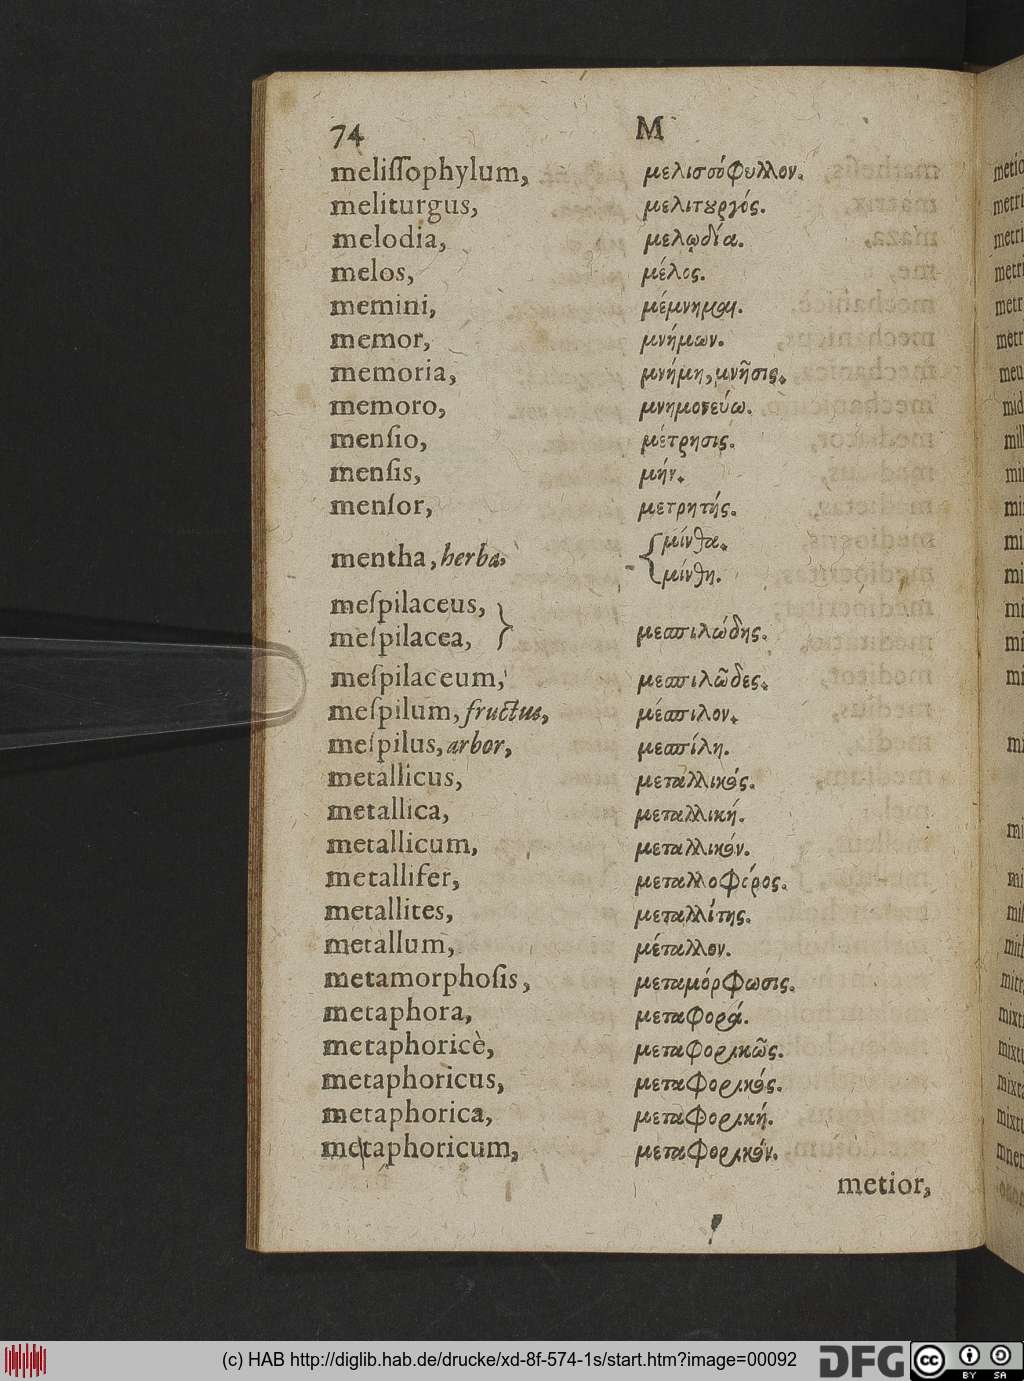 74 M
meliſſophylum, μελισσόφυλλον.
meliturgus, μελιτȣργός.
melodia, μελῳδία.
melos, μέλος.
memini, μέμνημαι.
memor, μνήμων.
memoria, μνήμη, μνῆσις.
memoro, μνημονεύω.
menſio, μέτρησις.
menſis, μήν.
menſor, μετρητής.
mentha, herba, { μίνθα.
μίνθη.
meſpilaceus, }
meſpilacea, μεσπιλώδης.
meſpilaceum, μεσπιλῶδες.
meſpilum, fructus, μέσπιλον.
meſpilus, arbor, μεσπίλη.
metallicus, μεταλλικός.
metallica, μεταλλική.
metallicum, μεταλλικόν.
metallifer, μεταλλοφόρος.
metallites, μεταλλίτης.
metallum, μέταλλον.
metamorphoſis, μεταμόρφωσις.
metaphora, μεταφορά.
metaphoricè, μεταφορικῶς.
metaphoricus, μεταφορικός.
metaphorica, μεταφορική.
metaphoricum, μεταφορικόν.
metior,
(c) HAB http://diglib.hab.de/drucke/xd-8f-574-1s/start.htm?image=00092
DFG
cc BY SA